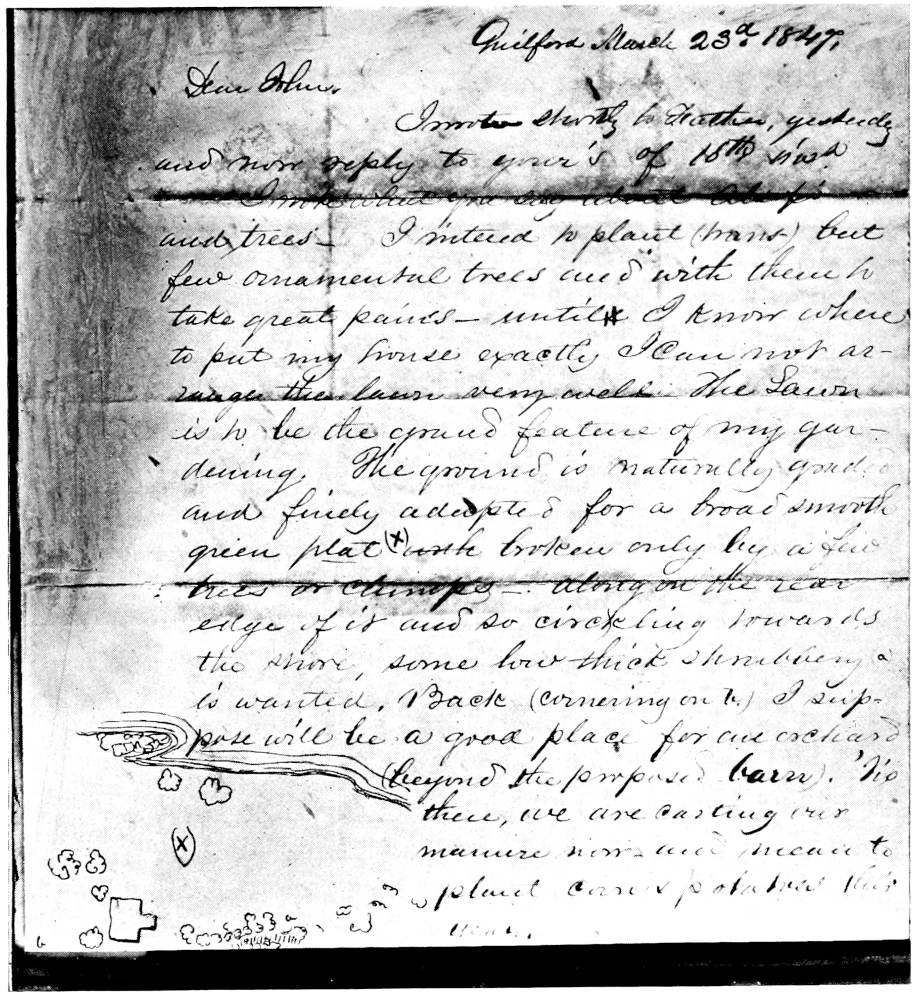 Guilford March 23d. 1847.
Dear John.
I wrote shortly to Father, yesterday
and now reply to your's of 18th inst
I note what you say about
and trees — I intend to plant (trans) but
few ornamental trees and with them to
take great pains — until I know where
to put my house exactly I can not ar-
range the lawn very well. The Lawn
is to be the grand feature of my gar-
dening. The ground is naturally graded
and finely adapted for a broad smooth
green plat (X) with broken only by a few
trees or clumps — along on the rear
edge of it and so circling towards
the shore, some low thick shrubbery a
is wanted. Back (cornering on b.) I sup-
pose will be a good place for an orchard
(beyond the proposed barn). 'Tis
there, we are carting our
manure now and mean to
plant corn & potatoes this
year.
(X)
a
b